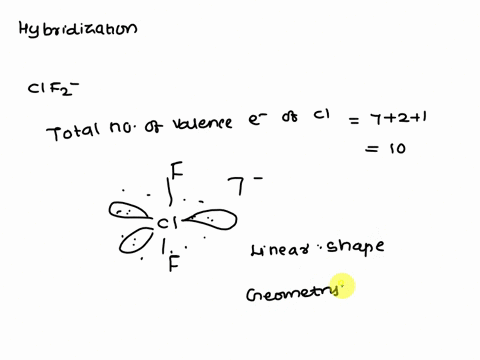 Hybridization
ClF2-
Total no. of valence e- of Cl = 7+2+1
= 10
F
7-
Cl
F
Linear shape
Geometry